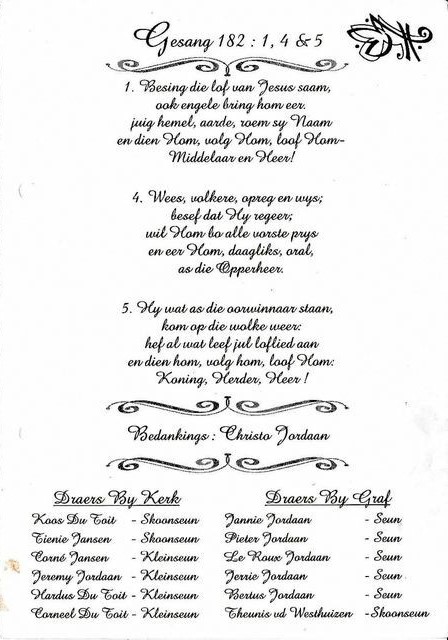 Gesang 182 : 1, 4 & 5
1. Besing die lof van Jesus saam,
ook engele bring hom eer.
juig hemel, aarde, roem sy Naam
en dien Hom, volg Hom, loof Hom-
Middelaar en Heer!
4. Wees, volkere, opreg en wys;
besef dat Hy regeer;
wil Hom bo alle vorste prys
en eer Hom, daagliks, oral,
as die Opperheer.
5. Hy wat as die oorwinnaar staan,
kom op die wolke weer:
hef al wat leef jul loflied aan
en dien hom, volg hom, loof Hom:
Koning, Herder, Heer !
Bedankings : Christo Jordaan
Draers By Kerk
Koos Du Toit - Skoonseun
Tienie Jansen - Skoonseun
Corné Jansen - Kleinseun
Jeremy Jordaan - Kleinseun
Hardus Du Toit - Kleinseun
Corneel Du Toit - Kleinseun
Draers By Graf
Jannie Jordaan - Seun
Pieter Jordaan - Seun
Le Roux Jordaan - Seun
Jerrie Jordaan - Seun
Bertus Jordaan - Seun
Theunis vd Westhuizen - Skoonseun